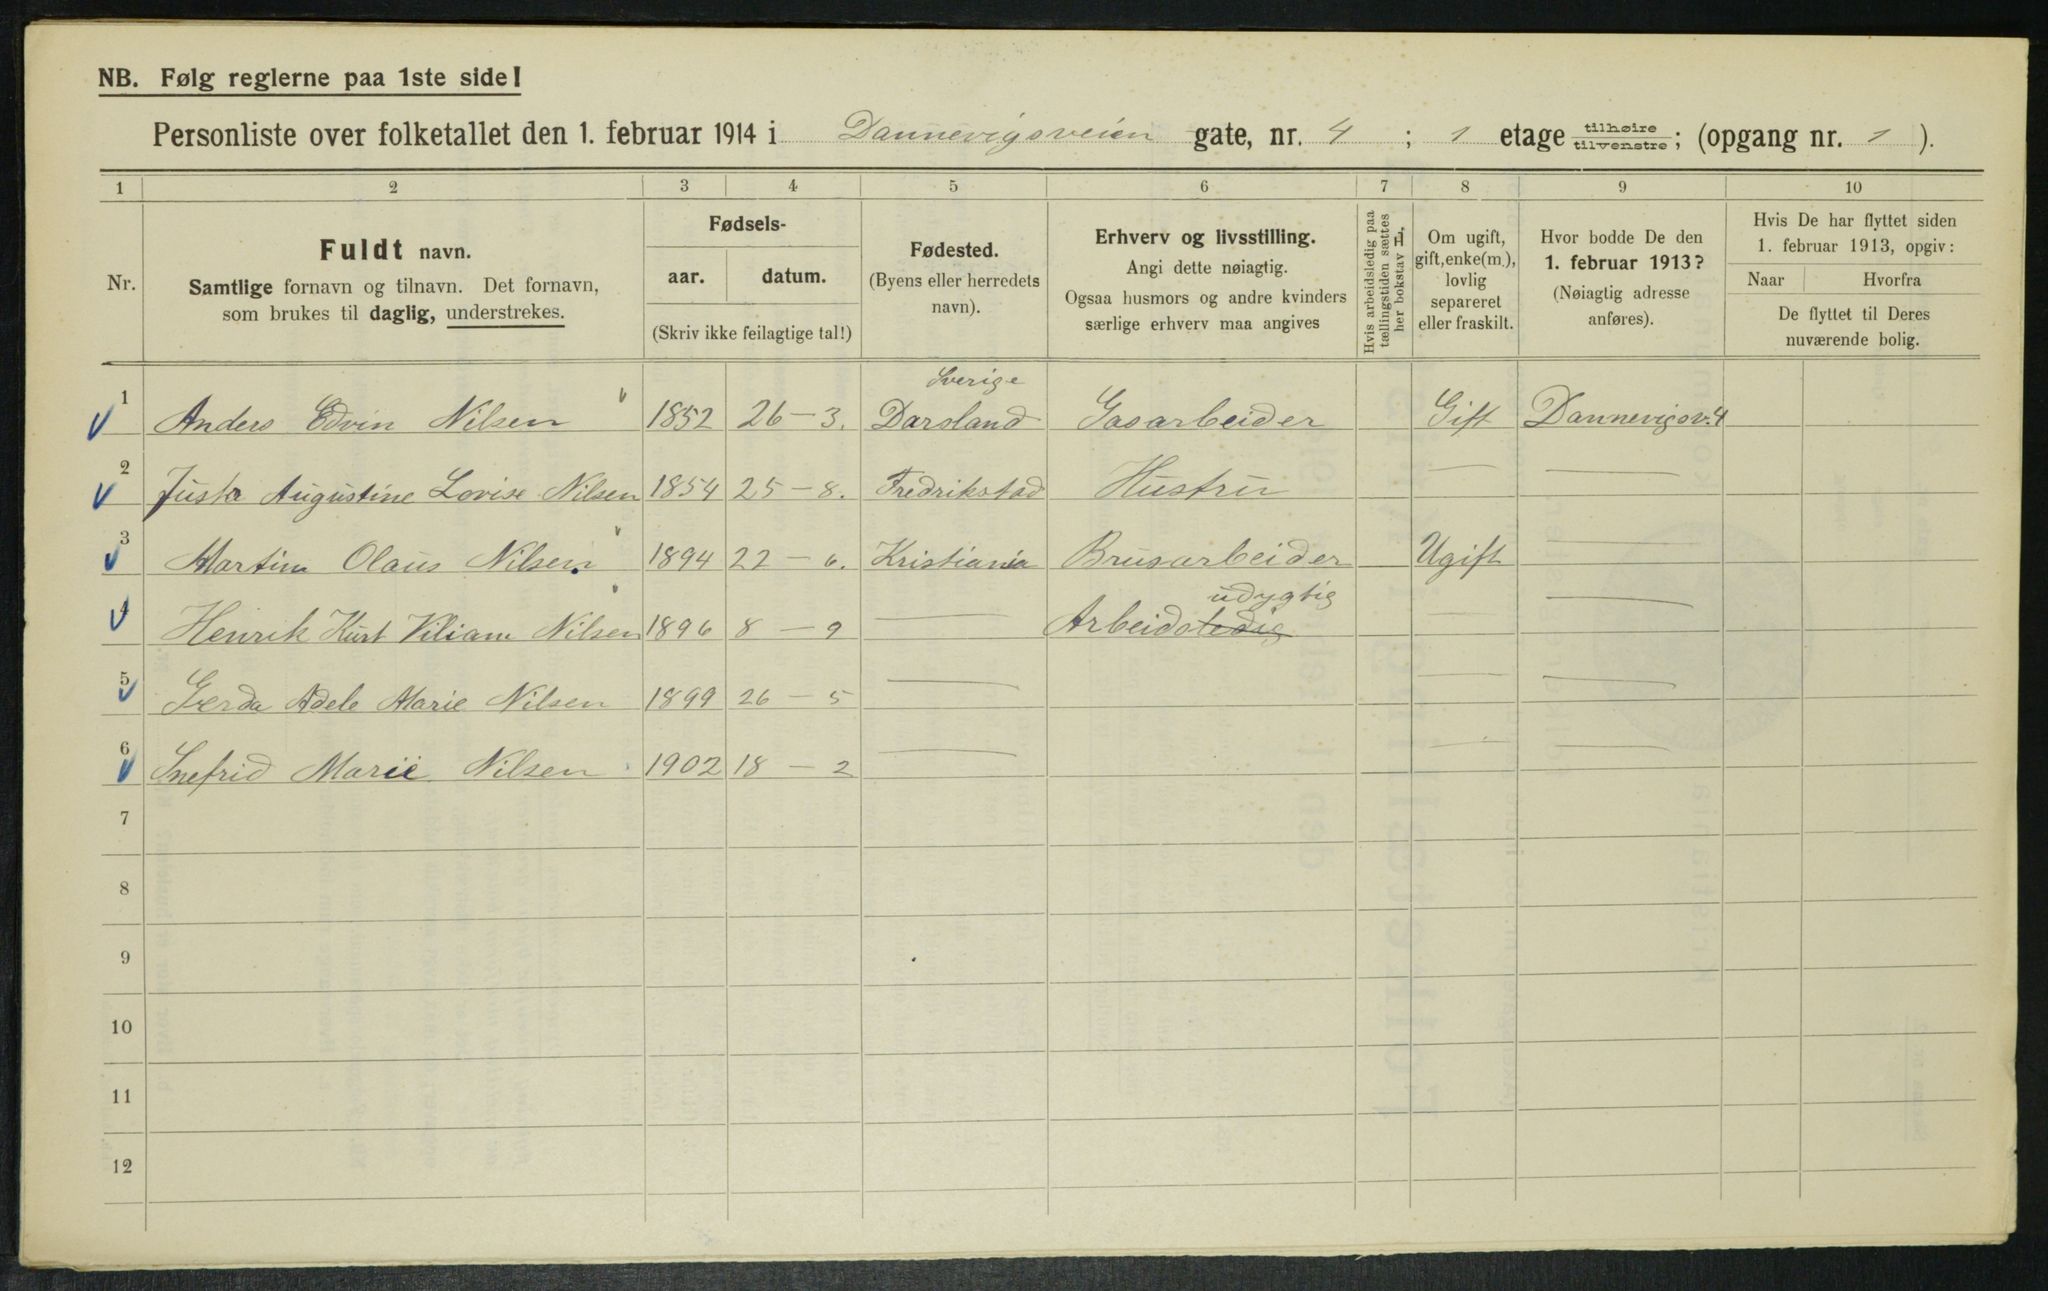 NB. Følg reglerne paa 1ste side!
Personliste over folketallet den 1. februar 1914 i Dannevigsveien gate, nr. 4 ; 1 etage tilhøire tilvenstre ; (opgang nr. 1 ).
1 2 3 4 5 6 7 8 9 10
Nr.
Fuldt navn.
Samtlige fornavn og tilnavn. Det fornavn,
som brukes til daglig, understrekes.
Fødsels-
aar. datum.
(Skriv ikke feilagtige tal!)
Fødested.
(Byens eller herredets
navn).
Erhverv og livsstilling.
Angi dette nøiagtig.
Ogsaa husmors og andre kvinders
særlige erhverv maa angives
Hvis arbeidsledig paa
tællingstiden sættes
her bokstav l.
Om ugift,
gift, enke(m.),
lovlig
separeret
eller fraskilt.
Hvor bodde De den
1. februar 1913?
(Nøiagtig adresse
anføres).
Hvis De har flyttet siden
1. februar 1913, opgiv:
Naar Hvorfra
De flyttet til Deres
nuværende bolig.
Sverige
1 Anders Edvin Nilsen 1852 26 – 3. Darsland Gasarbeider Gift Dannevigsv. 4
2 Justa Augustine Lovise Nilsen 1854 25 – 8. Fredrikstad Hustru — —
3 Martin Olaus Nilsen 1894 22 – 6. Kristiania Brusarbeider Ugift —
udygtig
4 Henrik Kurt Viliam Nilsen 1896 8 – 9 — Arbeidsledig — —
5 Gerda Adele Marie Nilsen 1899 26 – 5 — — —
6 Snefrid Marie Nilsen 1902 18 – 2 — — —
7
8
9
10
11
12